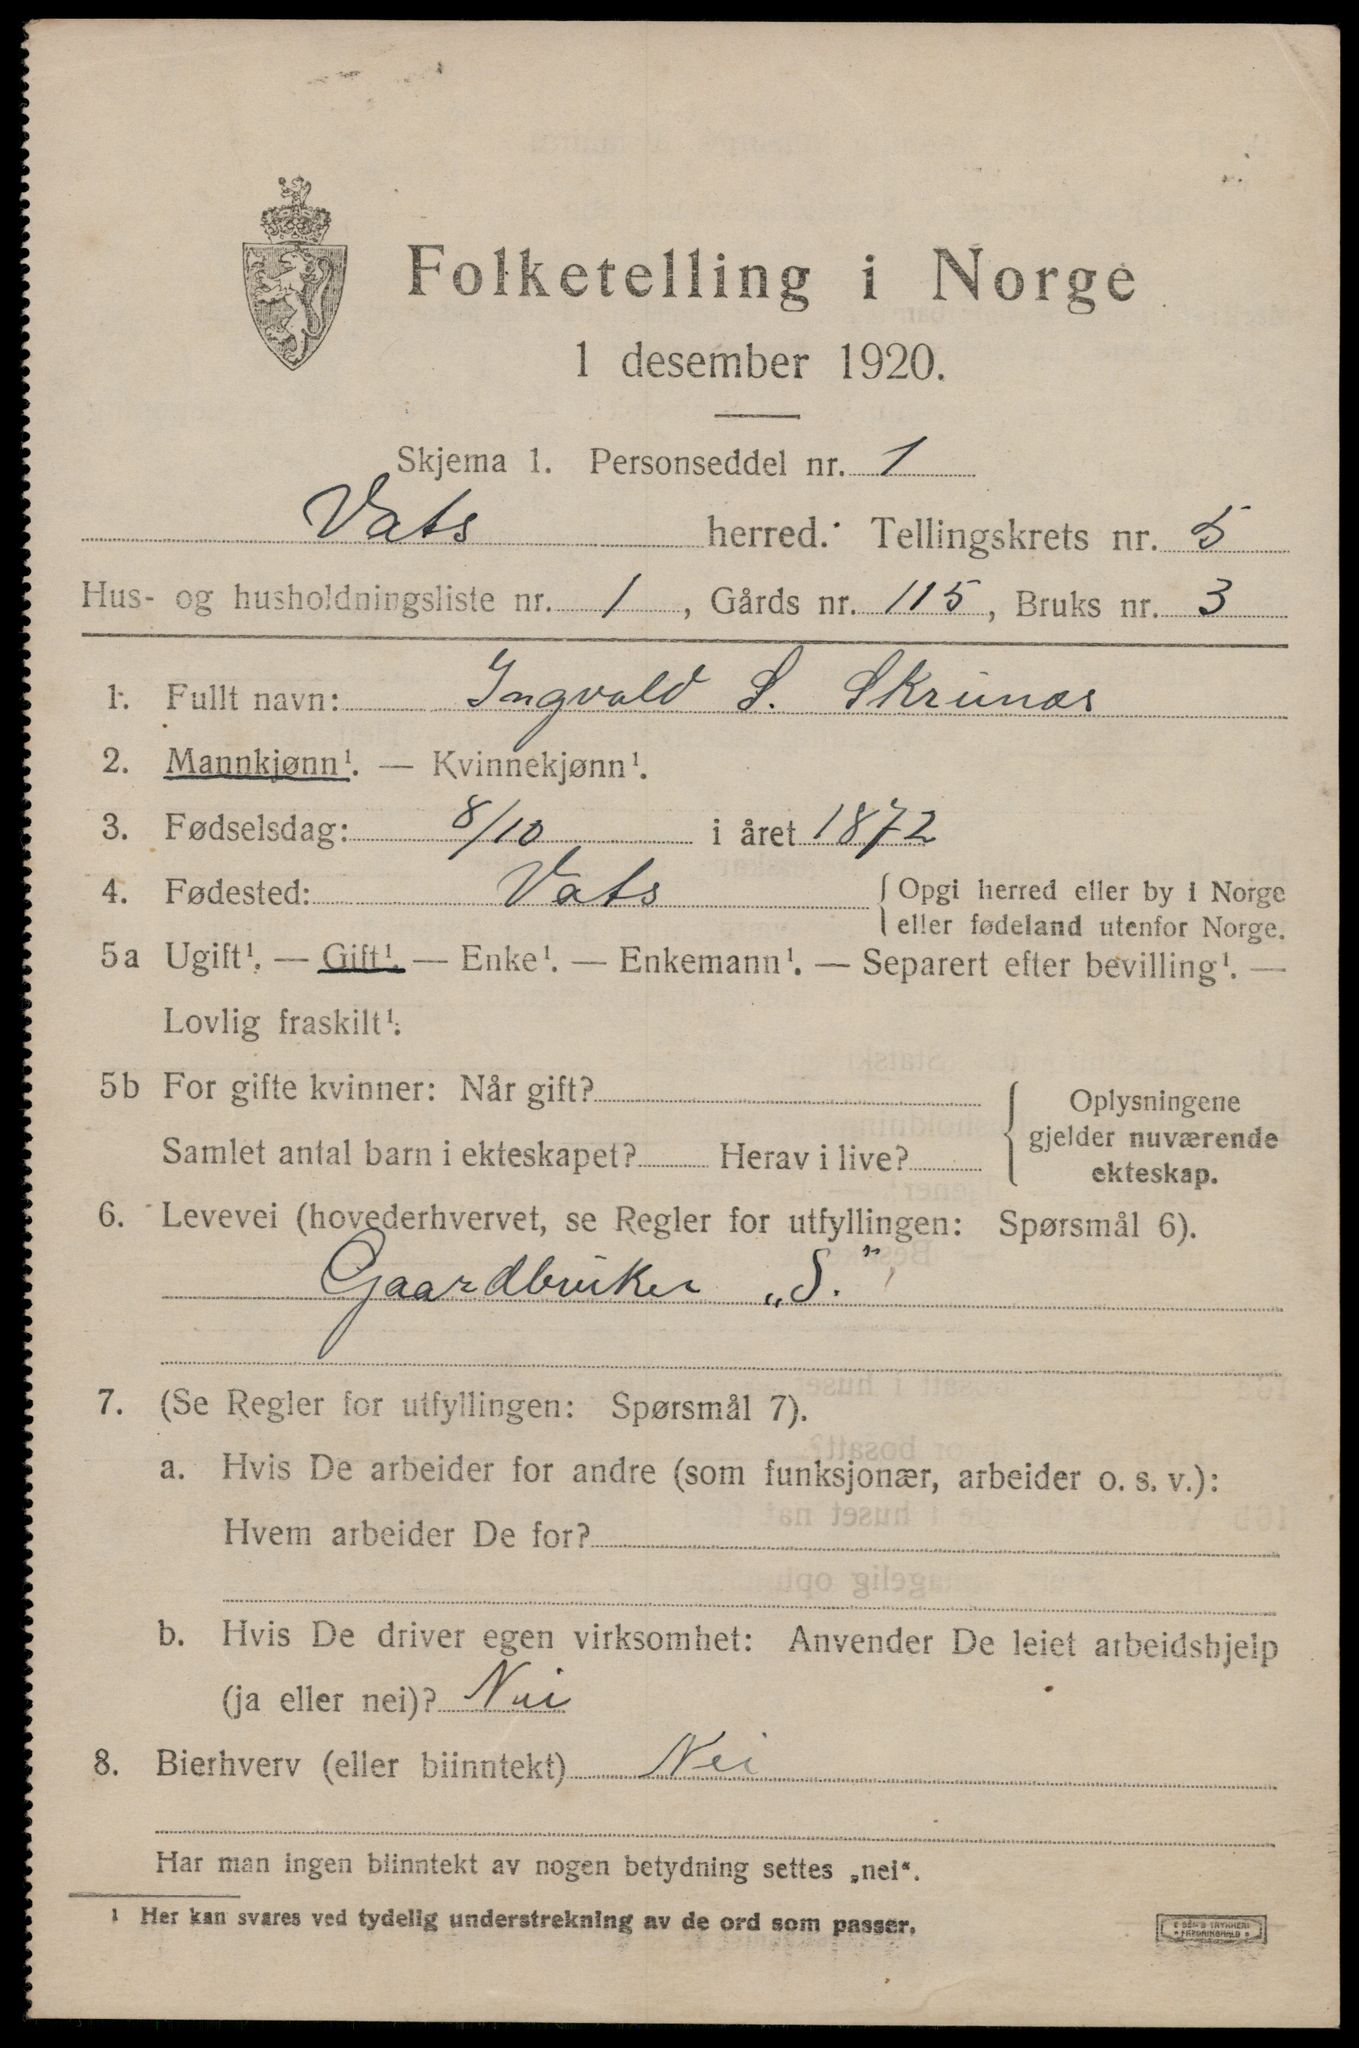 Folketelling i Norge
1 desember 1920.
Skjema 1. Personseddel nr. 1
Vats herred. Tellingskrets nr. 5
Hus- og husholdningsliste nr. 1, Gårds nr. 115, Bruks nr. 3
1. Fullt navn: Ingvald S. Skrunes
2. Mannkjønn¹. — Kvinnekjønn¹.
3. Fødselsdag: 8/10 i året 1872
4. Fødested: Vats { Opgi herred eller by i Norge
eller fødeland utenfor Norge.
5a Ugift¹. — Gift¹. — Enke¹. — Enkemann¹. — Separert efter bevilling¹. —
Lovlig fraskilt¹.
5b For gifte kvinner: Når gift?
Samlet antal barn i ekteskapet? Herav i live?
Oplysningene
gjelder nuværende
ekteskap.
6. Levevei (hovederhvervet, se Regler for utfyllingen: Spørsmål 6).
Gaardbruker „S."
7. (Se Regler for utfyllingen: Spørsmål 7).
a. Hvis De arbeider for andre (som funksjonær, arbeider o. s. v.):
Hvem arbeider De for?
b. Hvis De driver egen virksomhet: Anvender De leiet arbeidshjelp
(ja eller nei)? Nei
8. Bierhverv (eller biinntekt) Nei
Har man ingen biinntekt av nogen betydning settes „nei".
1 Her kan svares ved tydelig understrekning av de ord som passer.